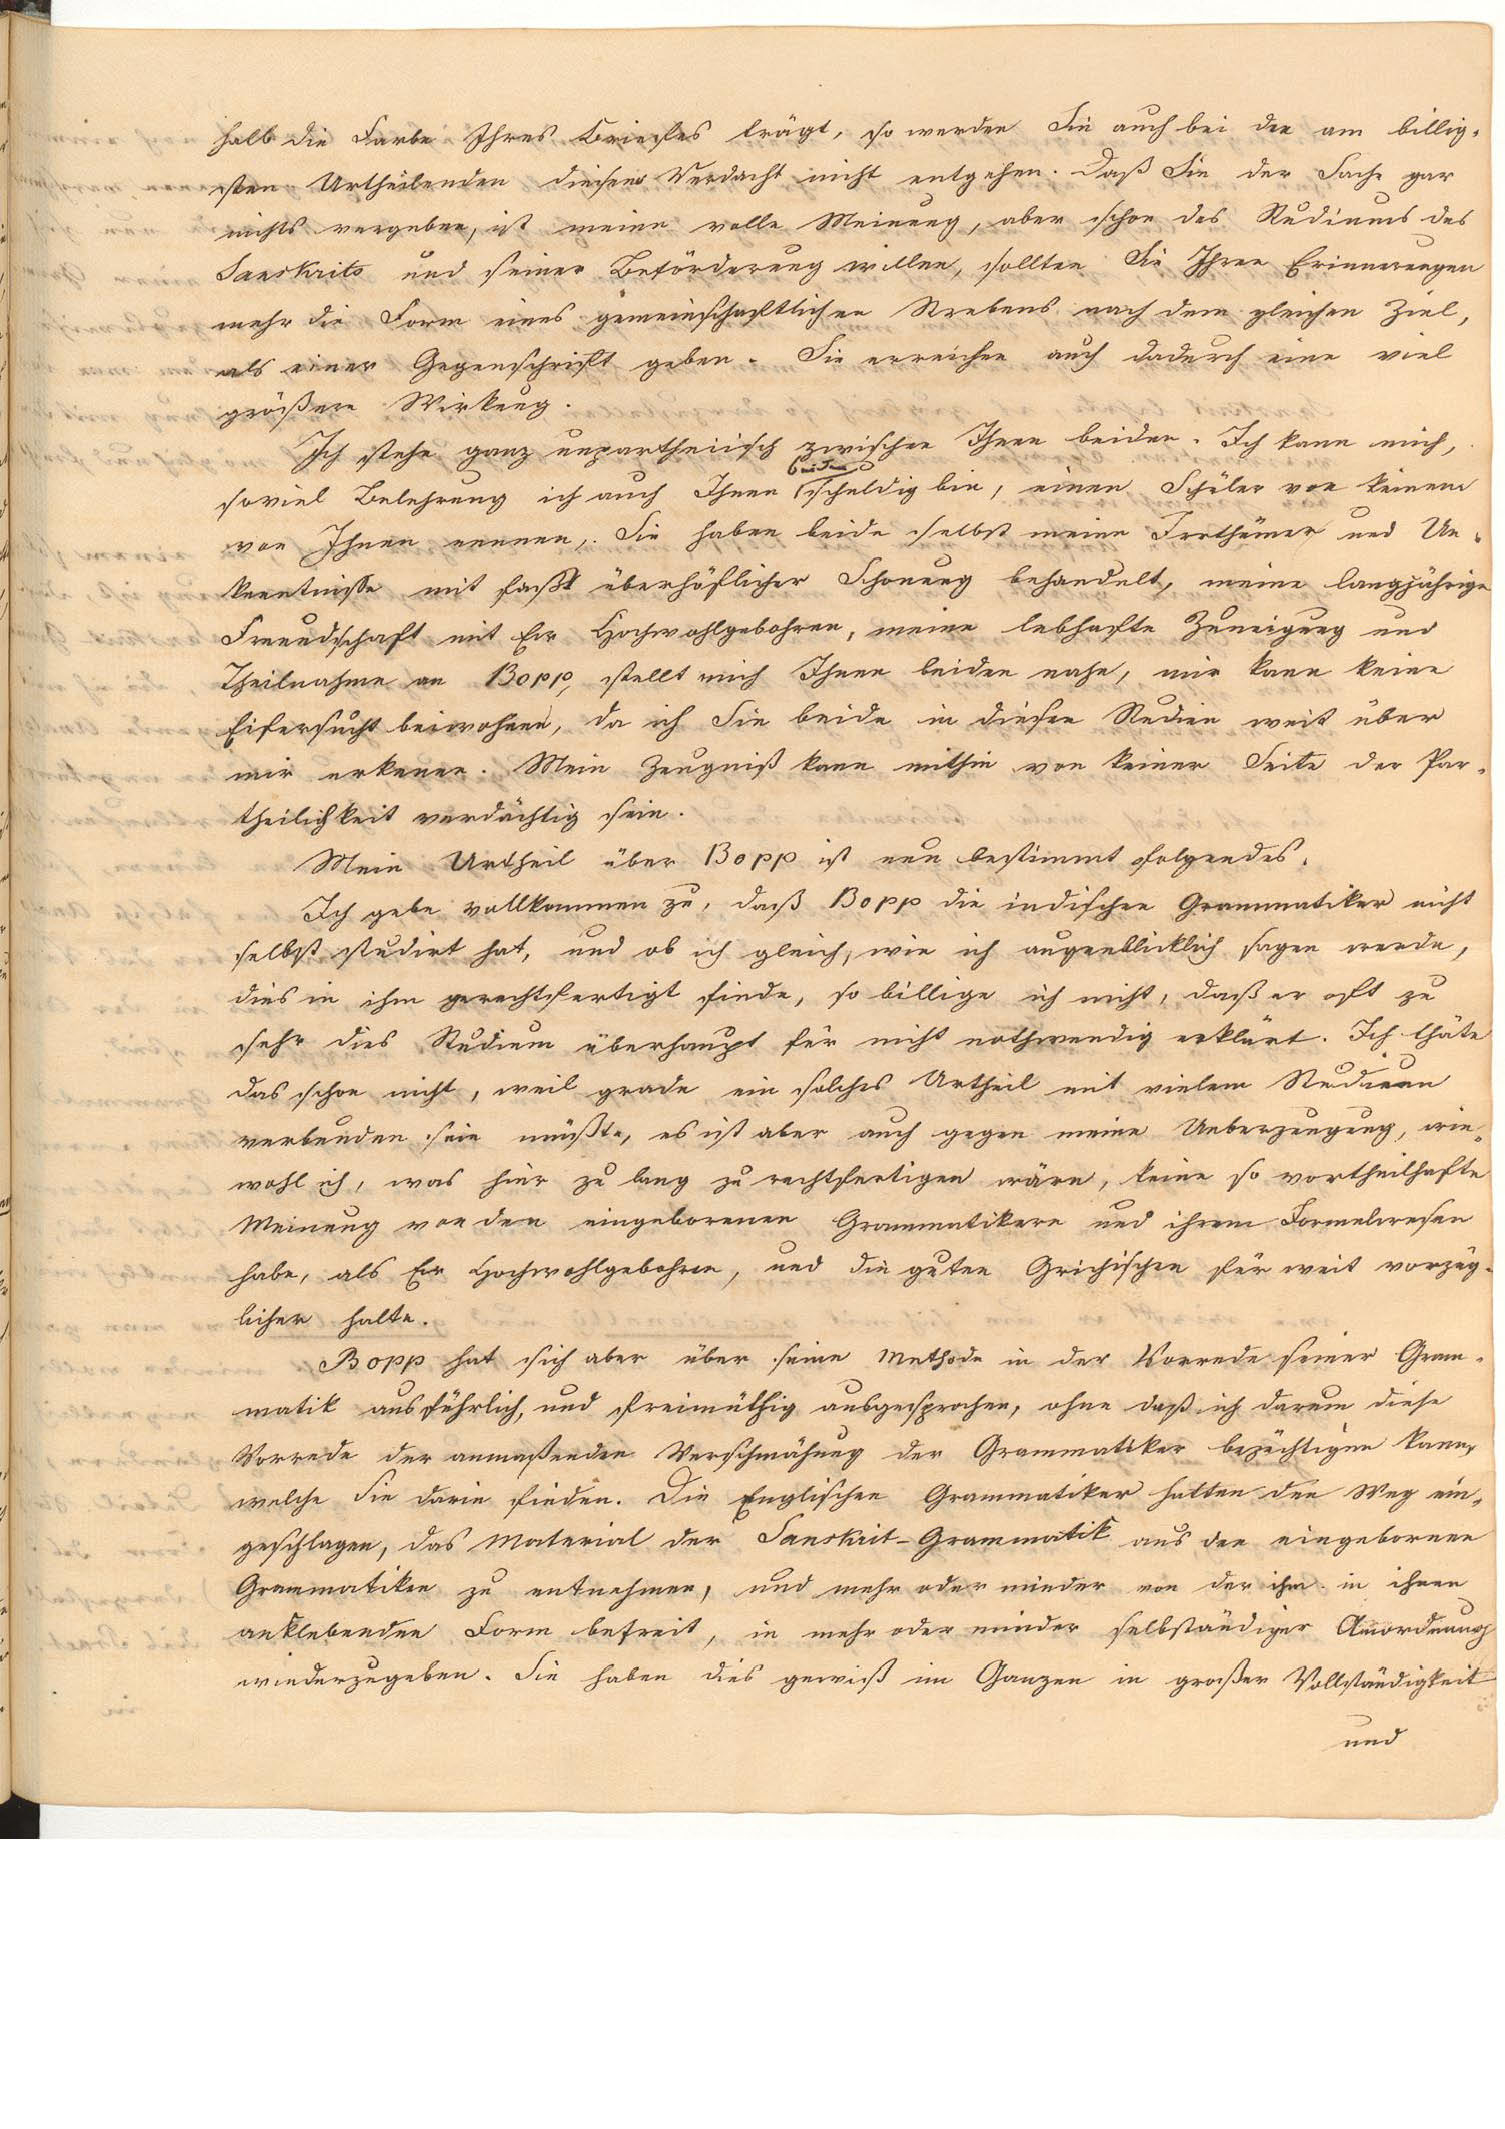 halb die Farbe Ihres Briefes trägt, so werden Sie auch bei den am billig-
sten Urtheilenden diesem Verdacht nicht entgehen. Daß Sie der Sache gar
nichts vergeben, ist meine volle Meinung, aber schon des Studiums des
Sanskrits und seiner Beförderung willen, sollten Sie Ihren Erinnerungen
mehr die Form eines gemeinschaftlichen Strebens nach dem gleichen Ziel,
als einer Gegenschrift geben. Sie erreichen auch dadurch eine viel
größere Wirkung.
Ich stehe ganz unpartheiisch zwischen Ihnen beiden. Ich kann mich,
soviel Belehrung ich auch Ihnen beiden schuldig bin, einen Schüler von keinem
von Ihnen nennen, Sie haben beide selbst meine Irrthümer und Un-
kenntnisse mit fast überhöflicher Schonung behandelt, meine langjährige
Freundschaft mit Ew Hochwohlgebohren, meine lebhafte Zuneigung und
Theilnahme an Bopp, stellt mich Ihnen beiden nahe, mir kann keine
Eifersucht beiwohnen, da ich Sie beide in diesen Studien weit über
mir erkenne. Mein Zeugniß kann mithin von keiner Seite der Par-
theilichkeit verdächtig sein.
Mein Urtheil über Bopp ist nun bestimmt folgendes.
Ich gebe vollkommen zu, daß Bopp die indischen Grammatiker nicht
selbst studirt hat, und ob ich gleich, wie ich augenblicklich sagen werde,
dies in ihm gerechtfertigt finde, so billige ich nicht, daß er oft zu
sehr dies Studium überhaupt für nicht nothwendig erklärt. Ich thäte
das schon nicht, weil grade ein solches Urtheil mit vielem Studium
verbunden sein müßte, es ist aber auch gegen meine Ueberzeugung, wie-
wohl ich, was hier zu lang zu rechtfertigen wäre, keine so vortheilhafte
Meinung von den eingeborenen Grammatikern und ihrem Formelwesen
habe, als Ew Hochwohlgebohren, und die guten Grichischen für weit vorzüg-
licher halte.
Bopp hat sich aber über seine Methode in der Vorrede seiner Gram-
matik ausführlich, und freimüthig ausgesprochen, ohne daß ich darum diese
Vorrede der anmaßenden Verschmähung der Grammatiker bezüchtigen kann,
welche Sie darin finden. Die Englischen Grammatiker hatten den Weg ein-
geschlagen, das Material der Sanskrit-Grammatik aus den eingebornen
Grammatiken zu entnehmen, und mehr oder minder von der ihm in ihnen
anklebenden Form befreit, in mehr oder minder selbständiger Anordnung
wiederzugeben. Sie haben dies gewiß im Ganzen in großer Vollständigkeit
und